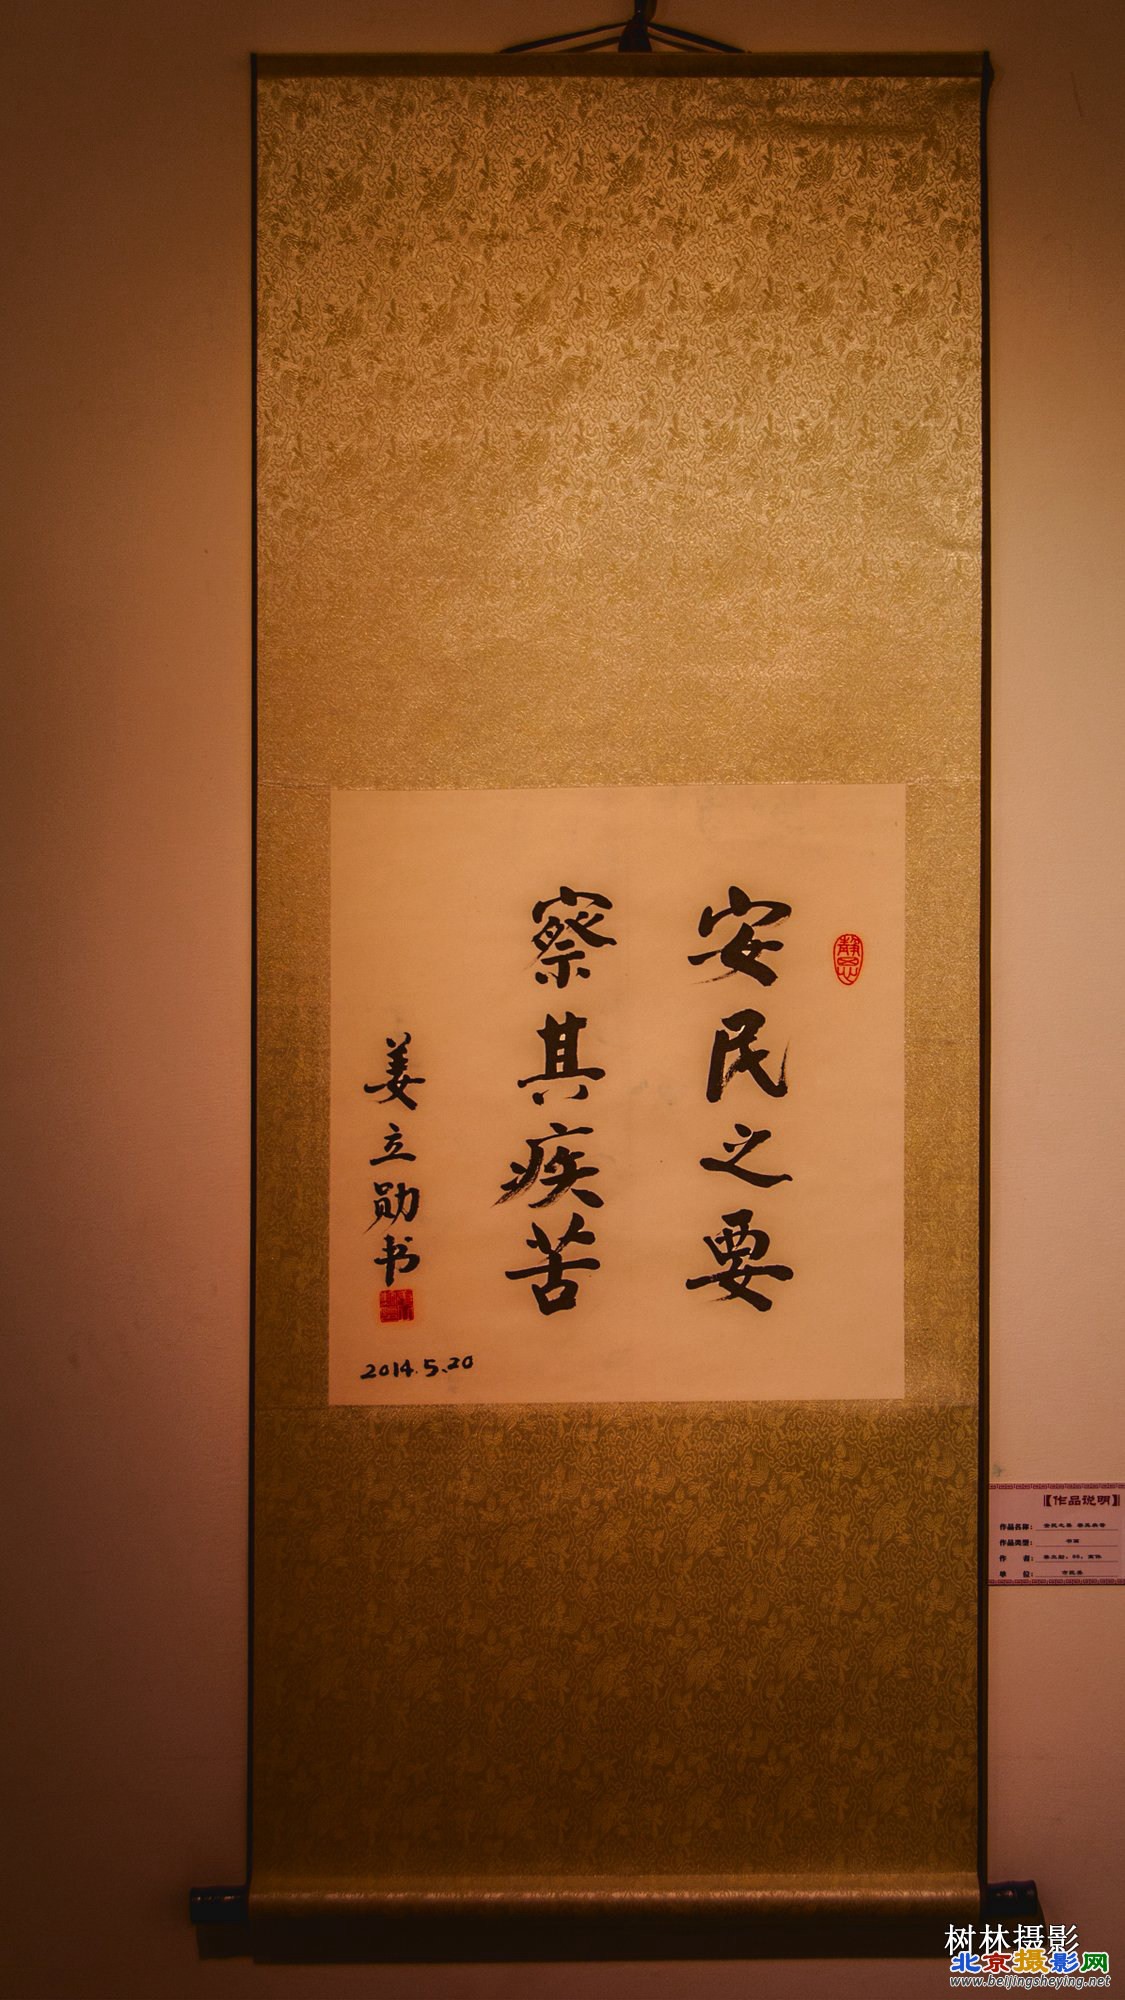 安民之要
察其疾苦
姜立勋书
2014.5.20
【作品说明】
作品名称：
作品类型：
作 者：
单 位：
树林摄影
北京摄影网
www.beijingsheying.net